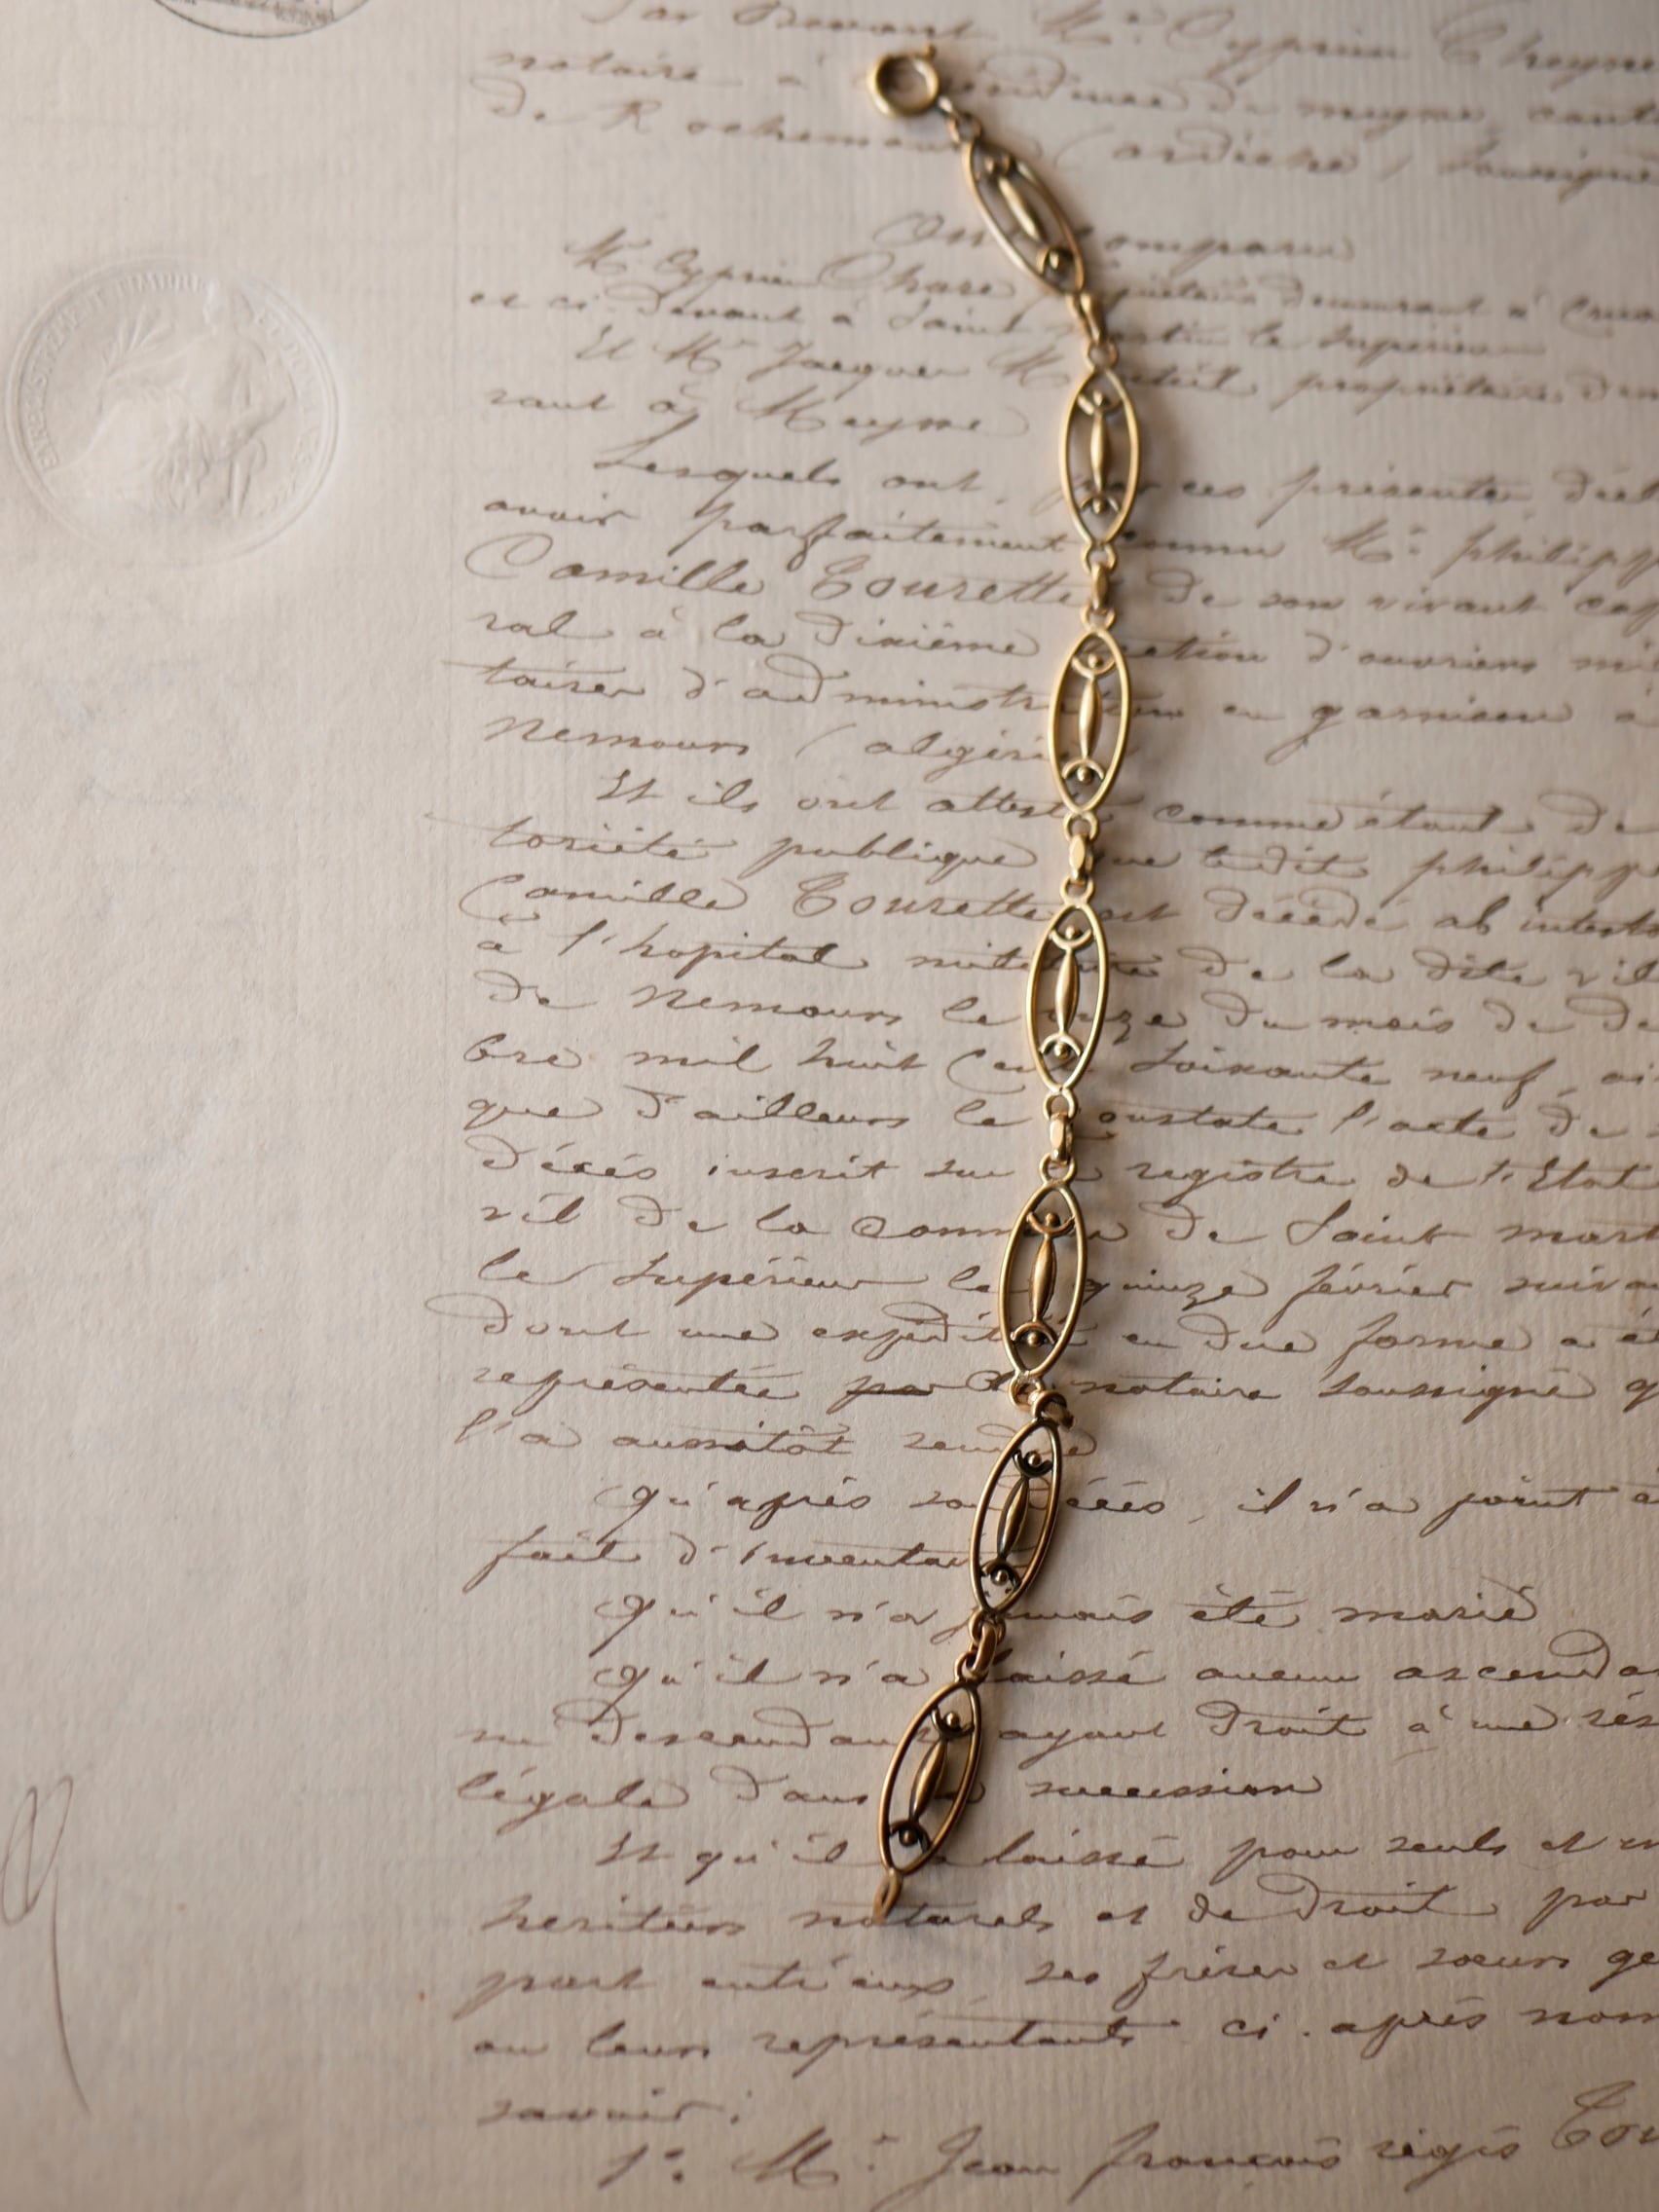 Par Devant Me Cyprien Cheyne
notaire à résidence de meysse, cant
de Rochemaure (ardèche) soussigné
Ont comparu
Mr Cyprien Chare demeurant à Cruas
et ci-devant à Saint martin le supérieur
Et Mr Jacques propriétaire dem
rant à Meysse
Lesquels ont, par ces présentes décl
avoir parfaitement connu Mr philipp
Camille Tourette de son vivant cap
ral à la dixième section d'ouvriers mi
taires d'administration en garnison à
Nemours (algérie)
Et ils ont attesté comme étant de
toriété publique que ledit philipp
Camille Tourette est décédé ab intesta
à l'hopital militaire de la dite vil
de Nemours le onze du mois de de
bre mil huit cent soixante neuf, ai
que d'ailleurs le constate l'acte de s
décés inscrit sur le registre de l'Etat
vil de la commune de Saint mart
le supérieur le quinze février suiva
dont une expédition en due forme a é
représentée par au notaire soussigné q
l'a aussitôt rendue
qu'après son décés, il n'a point é
fait d'inventaire
qu'il n'a jamais été marié
qu'il n'a laissé aucun ascenda
ni descendant ayant droit à une rés
légale dans sa succession
Et qu'il a laissé pour seuls et un
heritiers naturels et de droit par
part entr'eux, ses frères et soeurs ge
ou leurs représentants ci-après nom
savoir:
1°. Mr Jean françois régis Tou